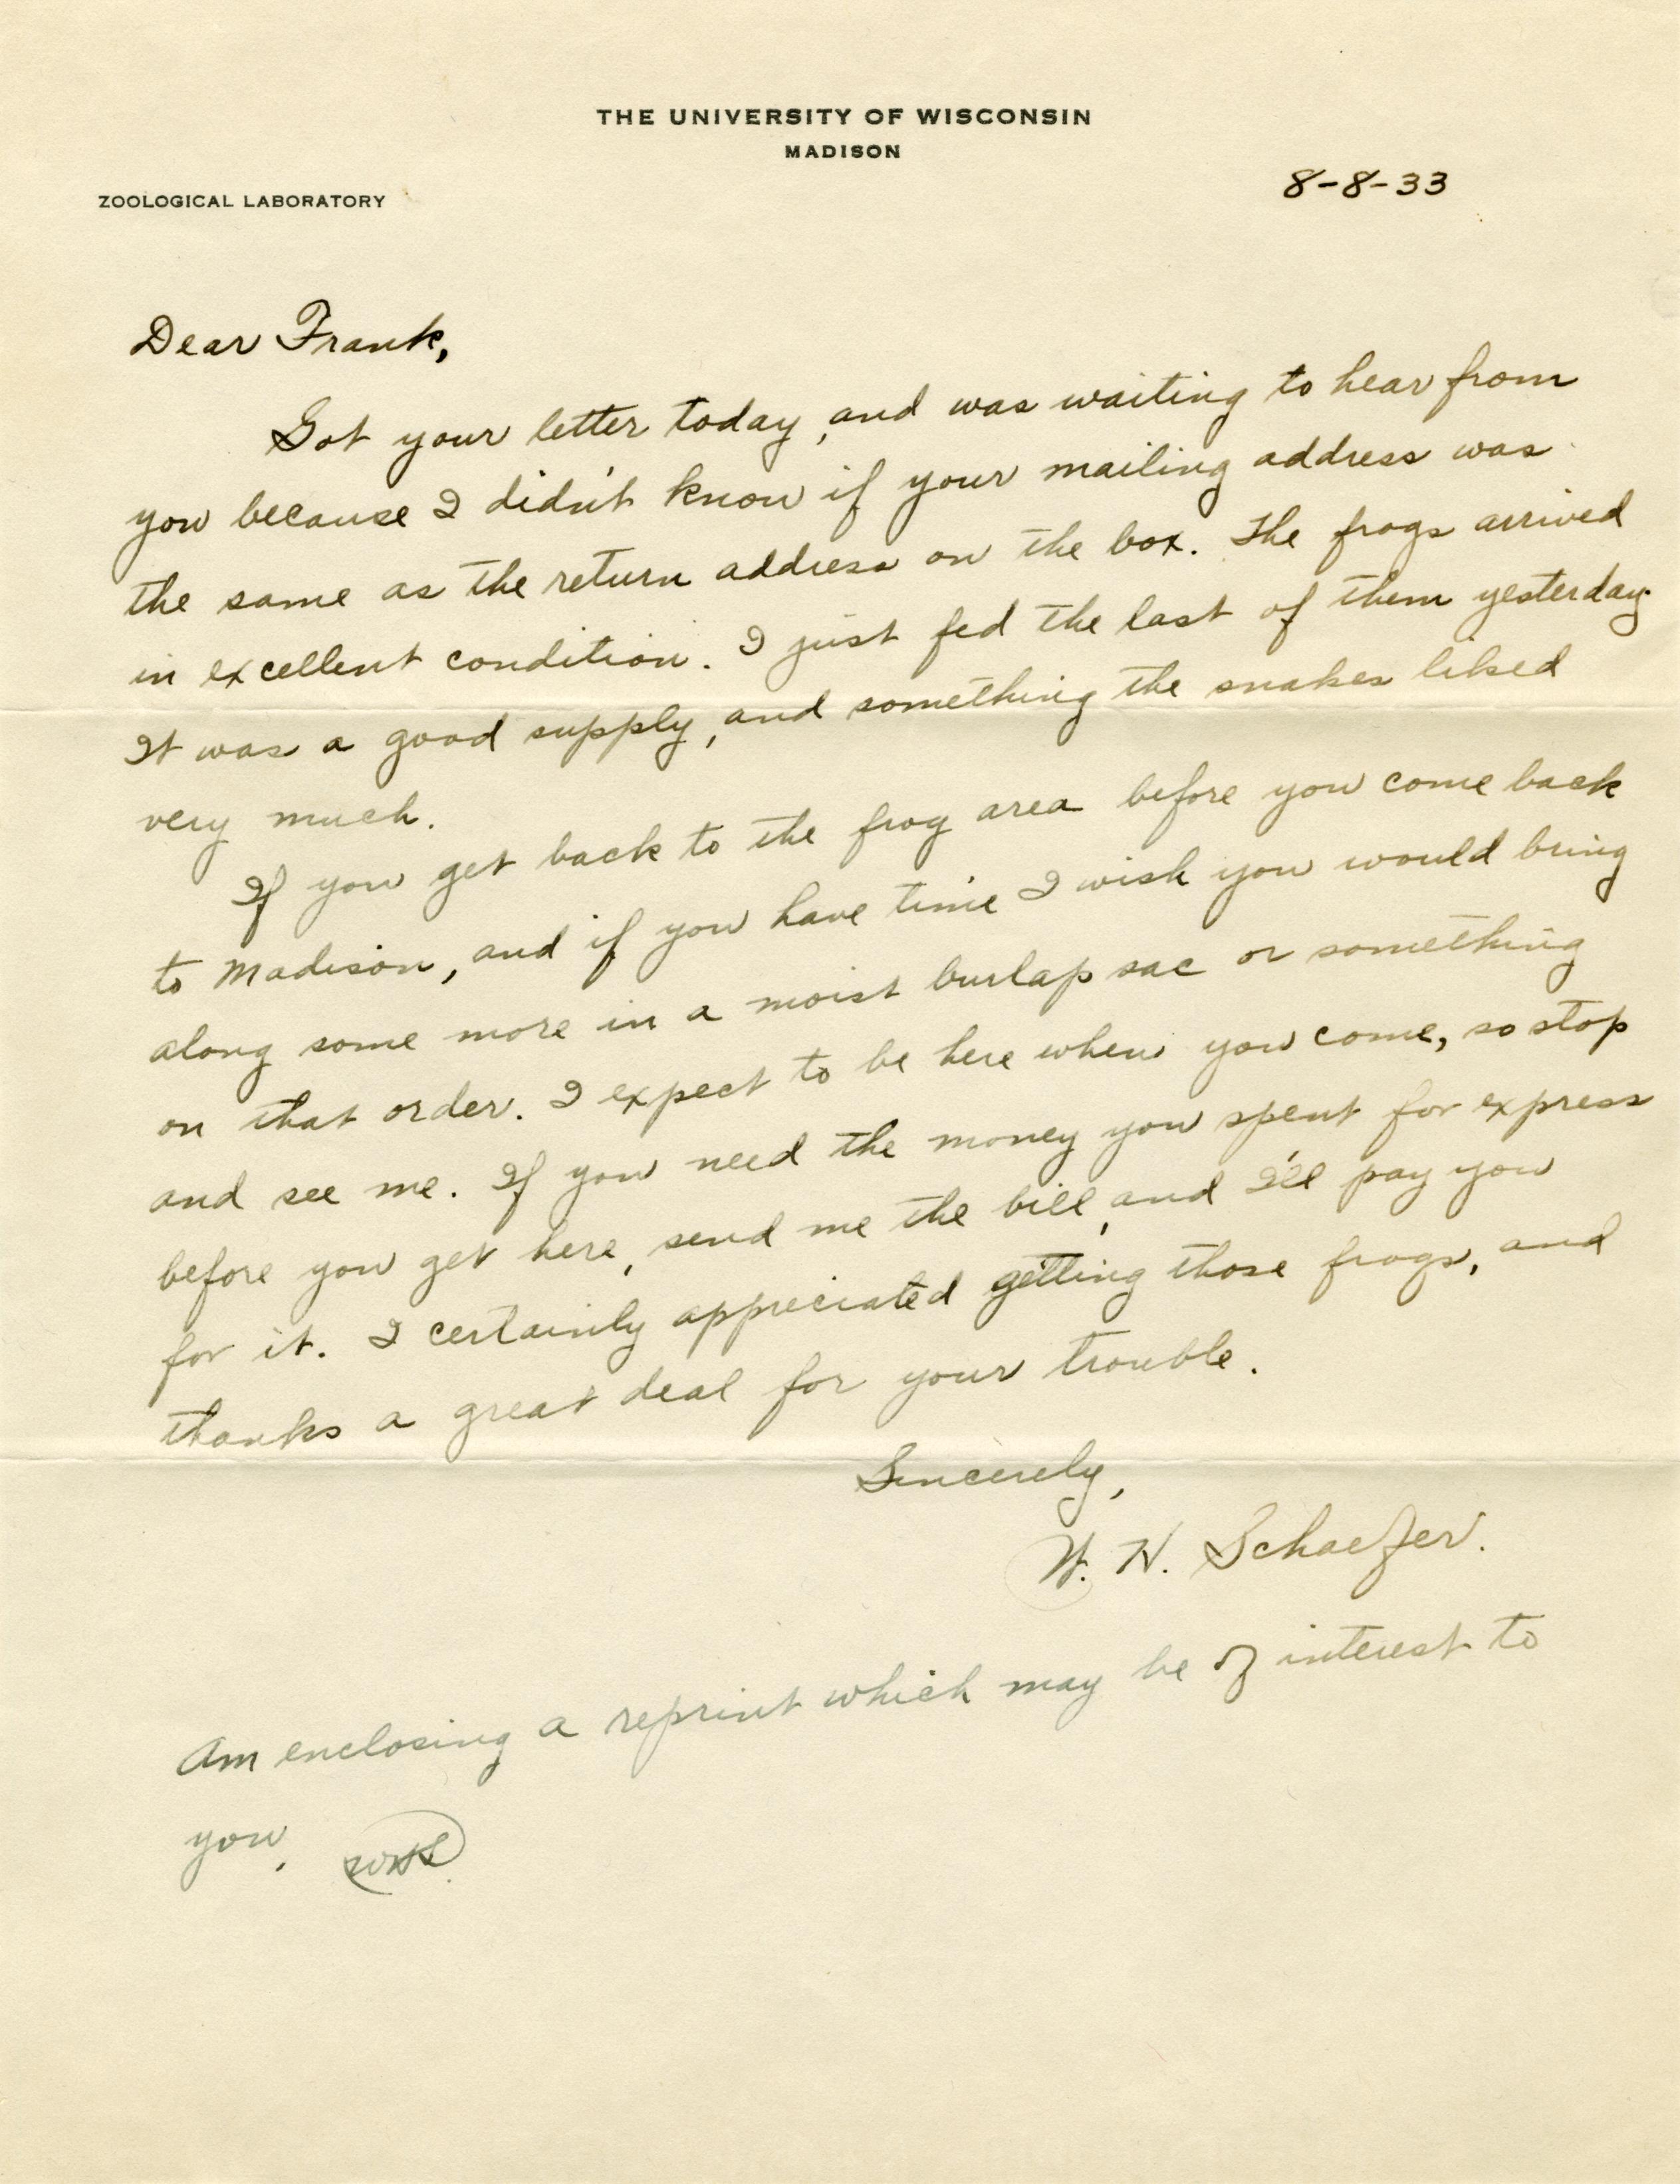 THE UNIVERSITY OF WISCONSIN
MADISON
ZOOLOGICAL LABORATORY
8-8-33
Dear Frank,
Got your letter today, and was waiting to hear from
you because I didn't know if your mailing address was
the same as the return address on the box. The frogs arrived
in excellent condition. I just fed the last of them yesterday.
It was a good supply, and something the snakes liked
very much.
If you get back to the frog area before you come back
to Madison, and if you have time I wish you would bring
along some more in a moist burlap sac or something
on that order. I expect to be here when you come, so stop
and see me. If you need the money you spent for express
before you get here, send me the bill, and I'll pay you
for it. I certainly appreciated getting those frogs, and
thanks a great deal for your trouble.
Sincerely,
W. H. Schaefer.
Am enclosing a reprint which may be of interest to
you. WHS.